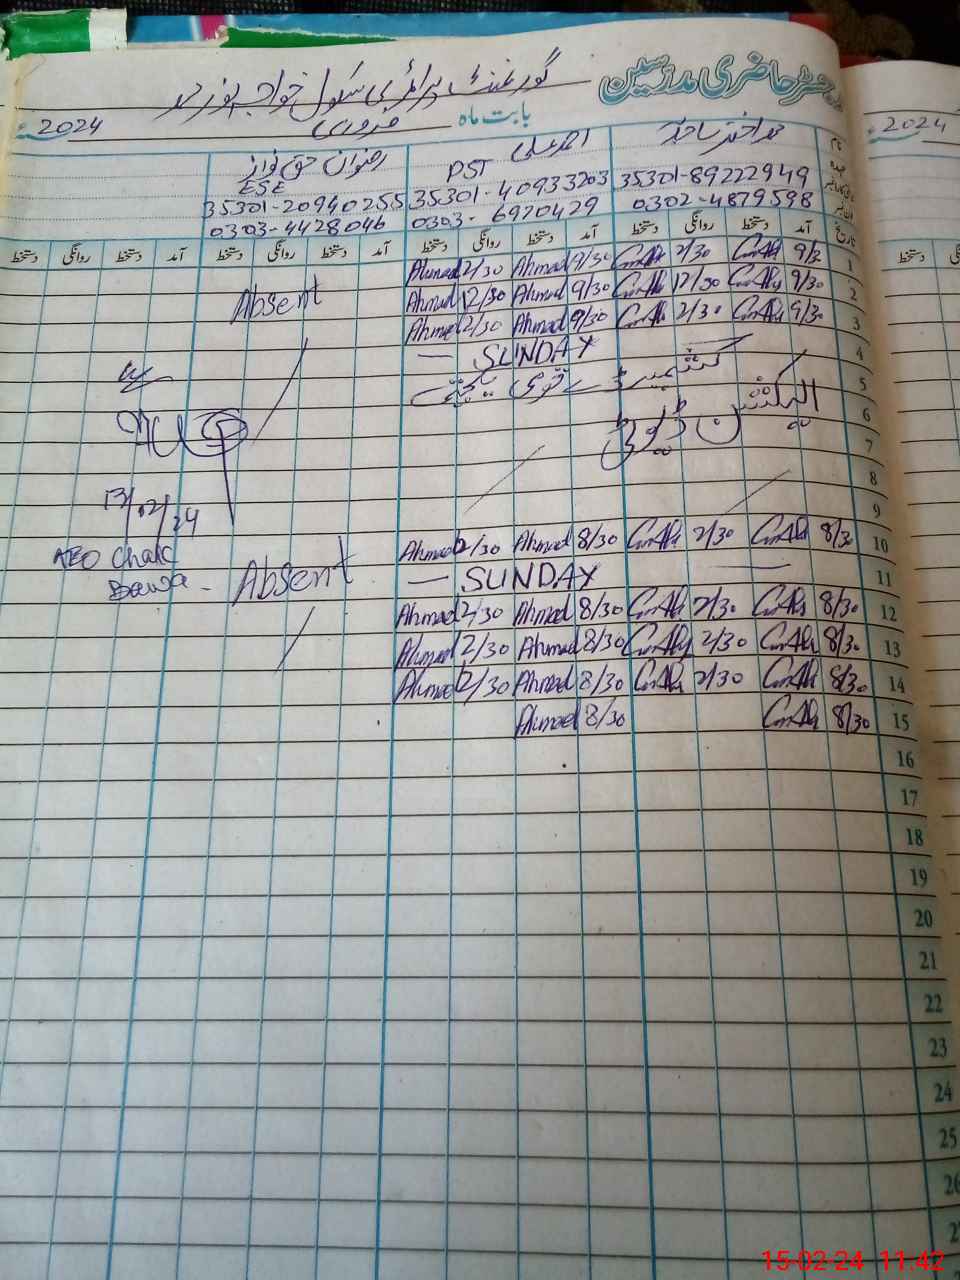 رجسٹر حاضری مدرسین
گورنمنٹ پرائمری سکول خواجہ پور
بابت ماہ فروری 2024ء
نام
عہدہ
محمد اختر ساجد احمد علی رضوان حق نواز
PST ESE
35301-89222949 35301-40933203 35301-20940255
0302-4879598 0303-6920429 0303-4428046
تاریخ آمد دستخط روانگی دستخط آمد دستخط روانگی دستخط آمد دستخط روانگی دستخط آمد دستخط روانگی دستخط
1 9/3 2/30 9/30 Ahmad 2/30 Ahmad
2 9/30 12/30 9/30 Ahmad 12/30 Ahmad Absent
3 9/30 2/30 9/30 Ahmad 2/30 Ahmad
4 — SUNDAY —
5 کشمیر ڈے قومی یکجہتی
6 الیکشن ڈیوٹی
7
8
9
13/02/24
AEO Chak
Bawa -
10 8/30 2/30 8/30 Ahmad 2/30 Ahmad
11 — SUNDAY — Absent
12 8/30 2/30 8/30 Ahmad 2/30 Ahmad
13 8/30 2/30 8/30 Ahmad 2/30 Ahmad
14 8/30 2/30 8/30 Ahmad 2/30 Ahmad
15 8/30 8/30 Ahmad
16
17
18
19
20
21
22
23
24
25
26
2024
دستخط
15-02-24 11:42